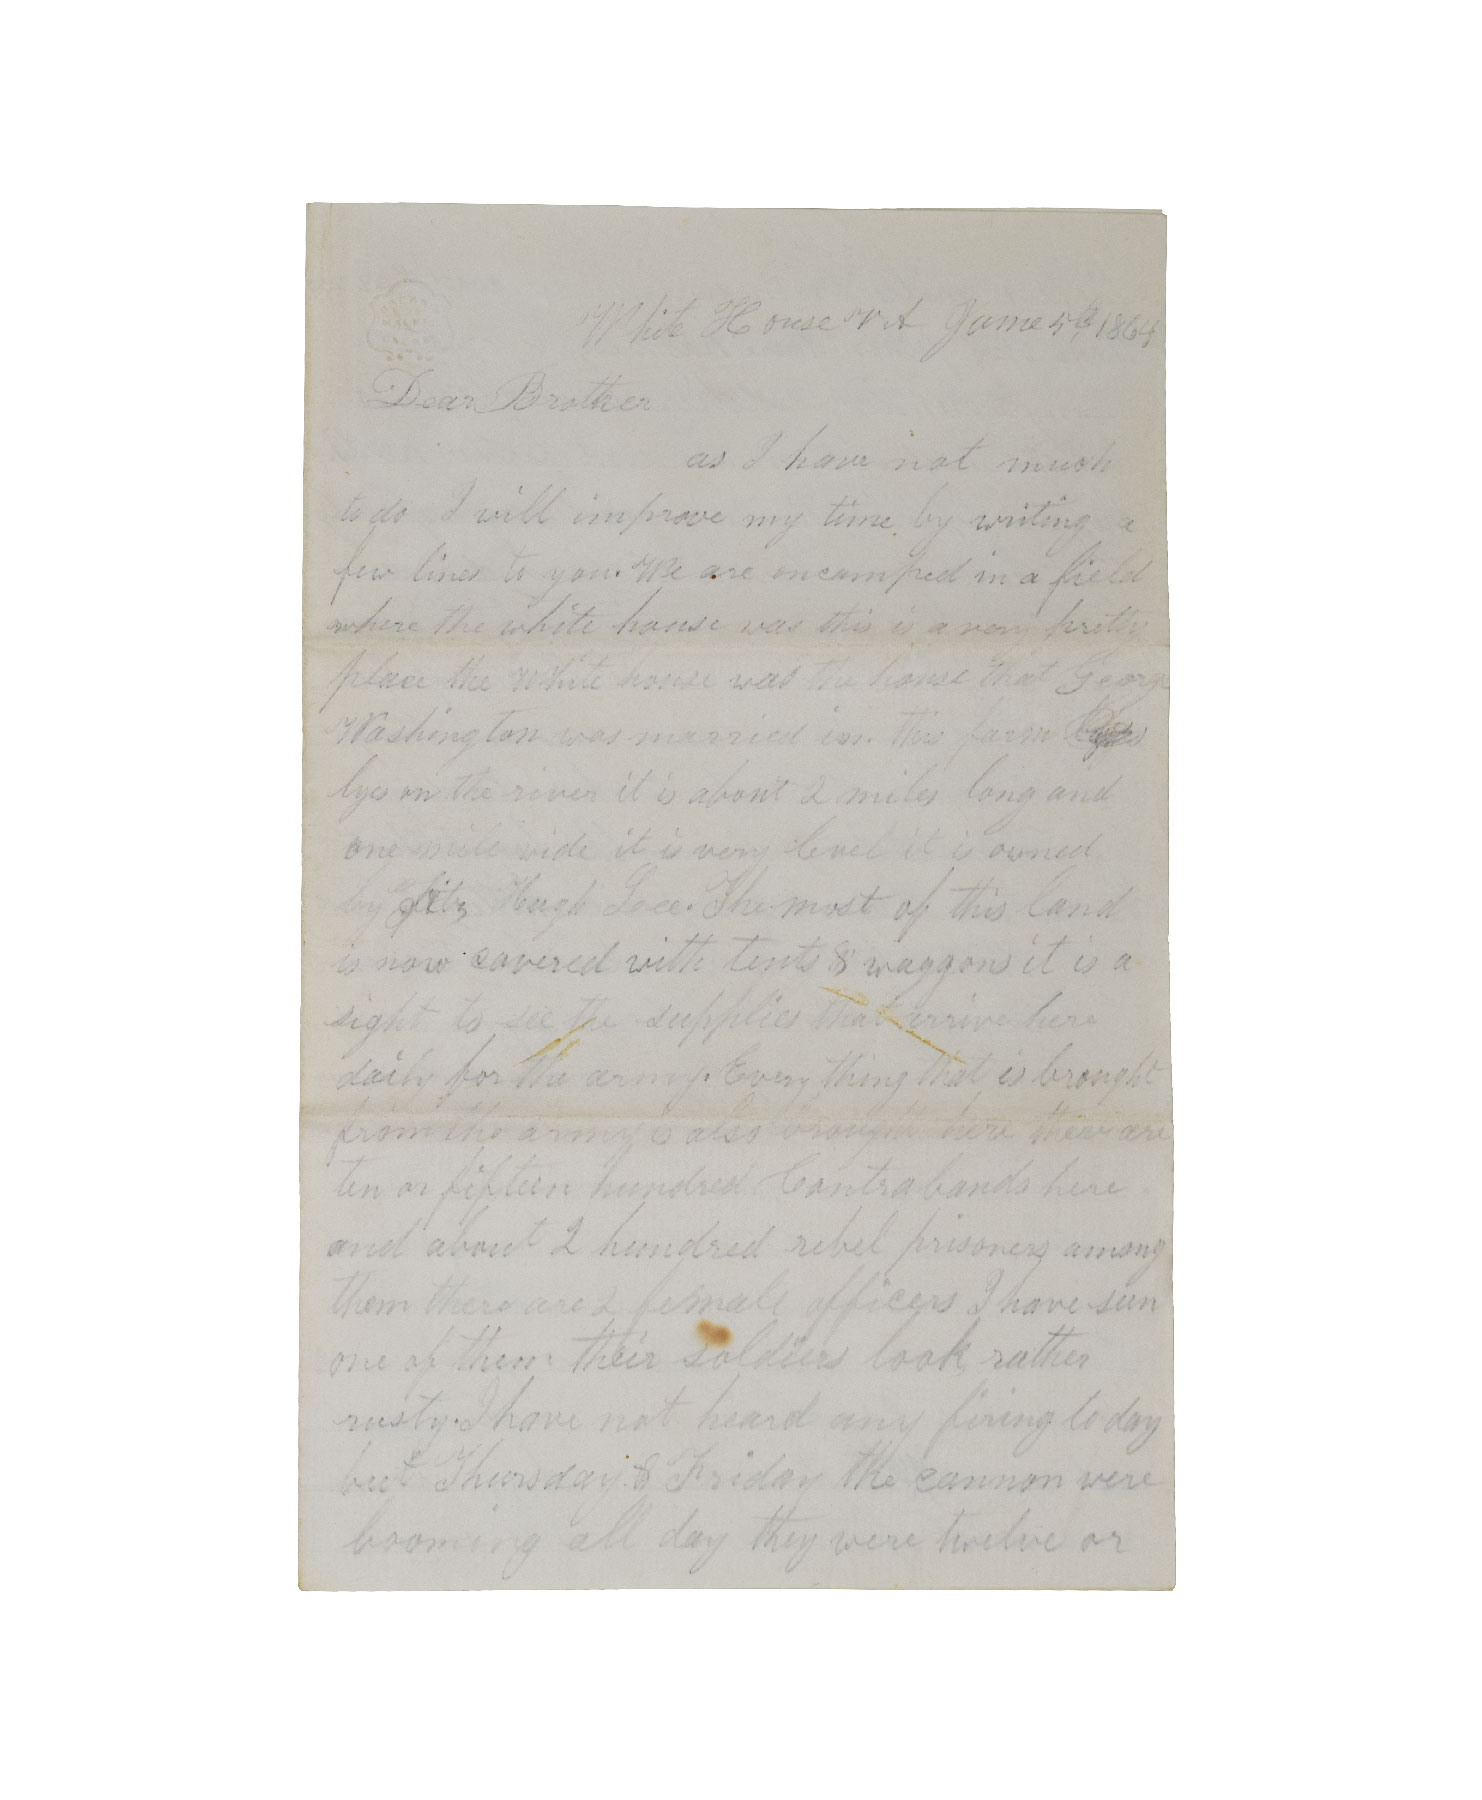 White House VA June 5th 1864
Dear Brother
as I have not much
to do I will improve my time by writing a
few lines to you. We are encamped in a field
where the white house was this is a very pretty
place the White house was the house that George
Washington was married in. this farm
lyes on the river it is about 2 miles long and
one mile wide it is very level it is owned
by Fitz Hugh Lee. The most of this land
is now covered with tents & waggons it is a
sight to see the supplies that arrive here
daily for the army. Every thing that is brought
from the army is also brought here there are
ten or fifteen hundred Contrabands here
and about 2 hundred rebel prisoners among
them there are 2 female officers I have seen
one of them their soldiers look rather
rusty. I have not heard any firing to day
but Thursday & Friday the cannon were
booming all day they were twelve or